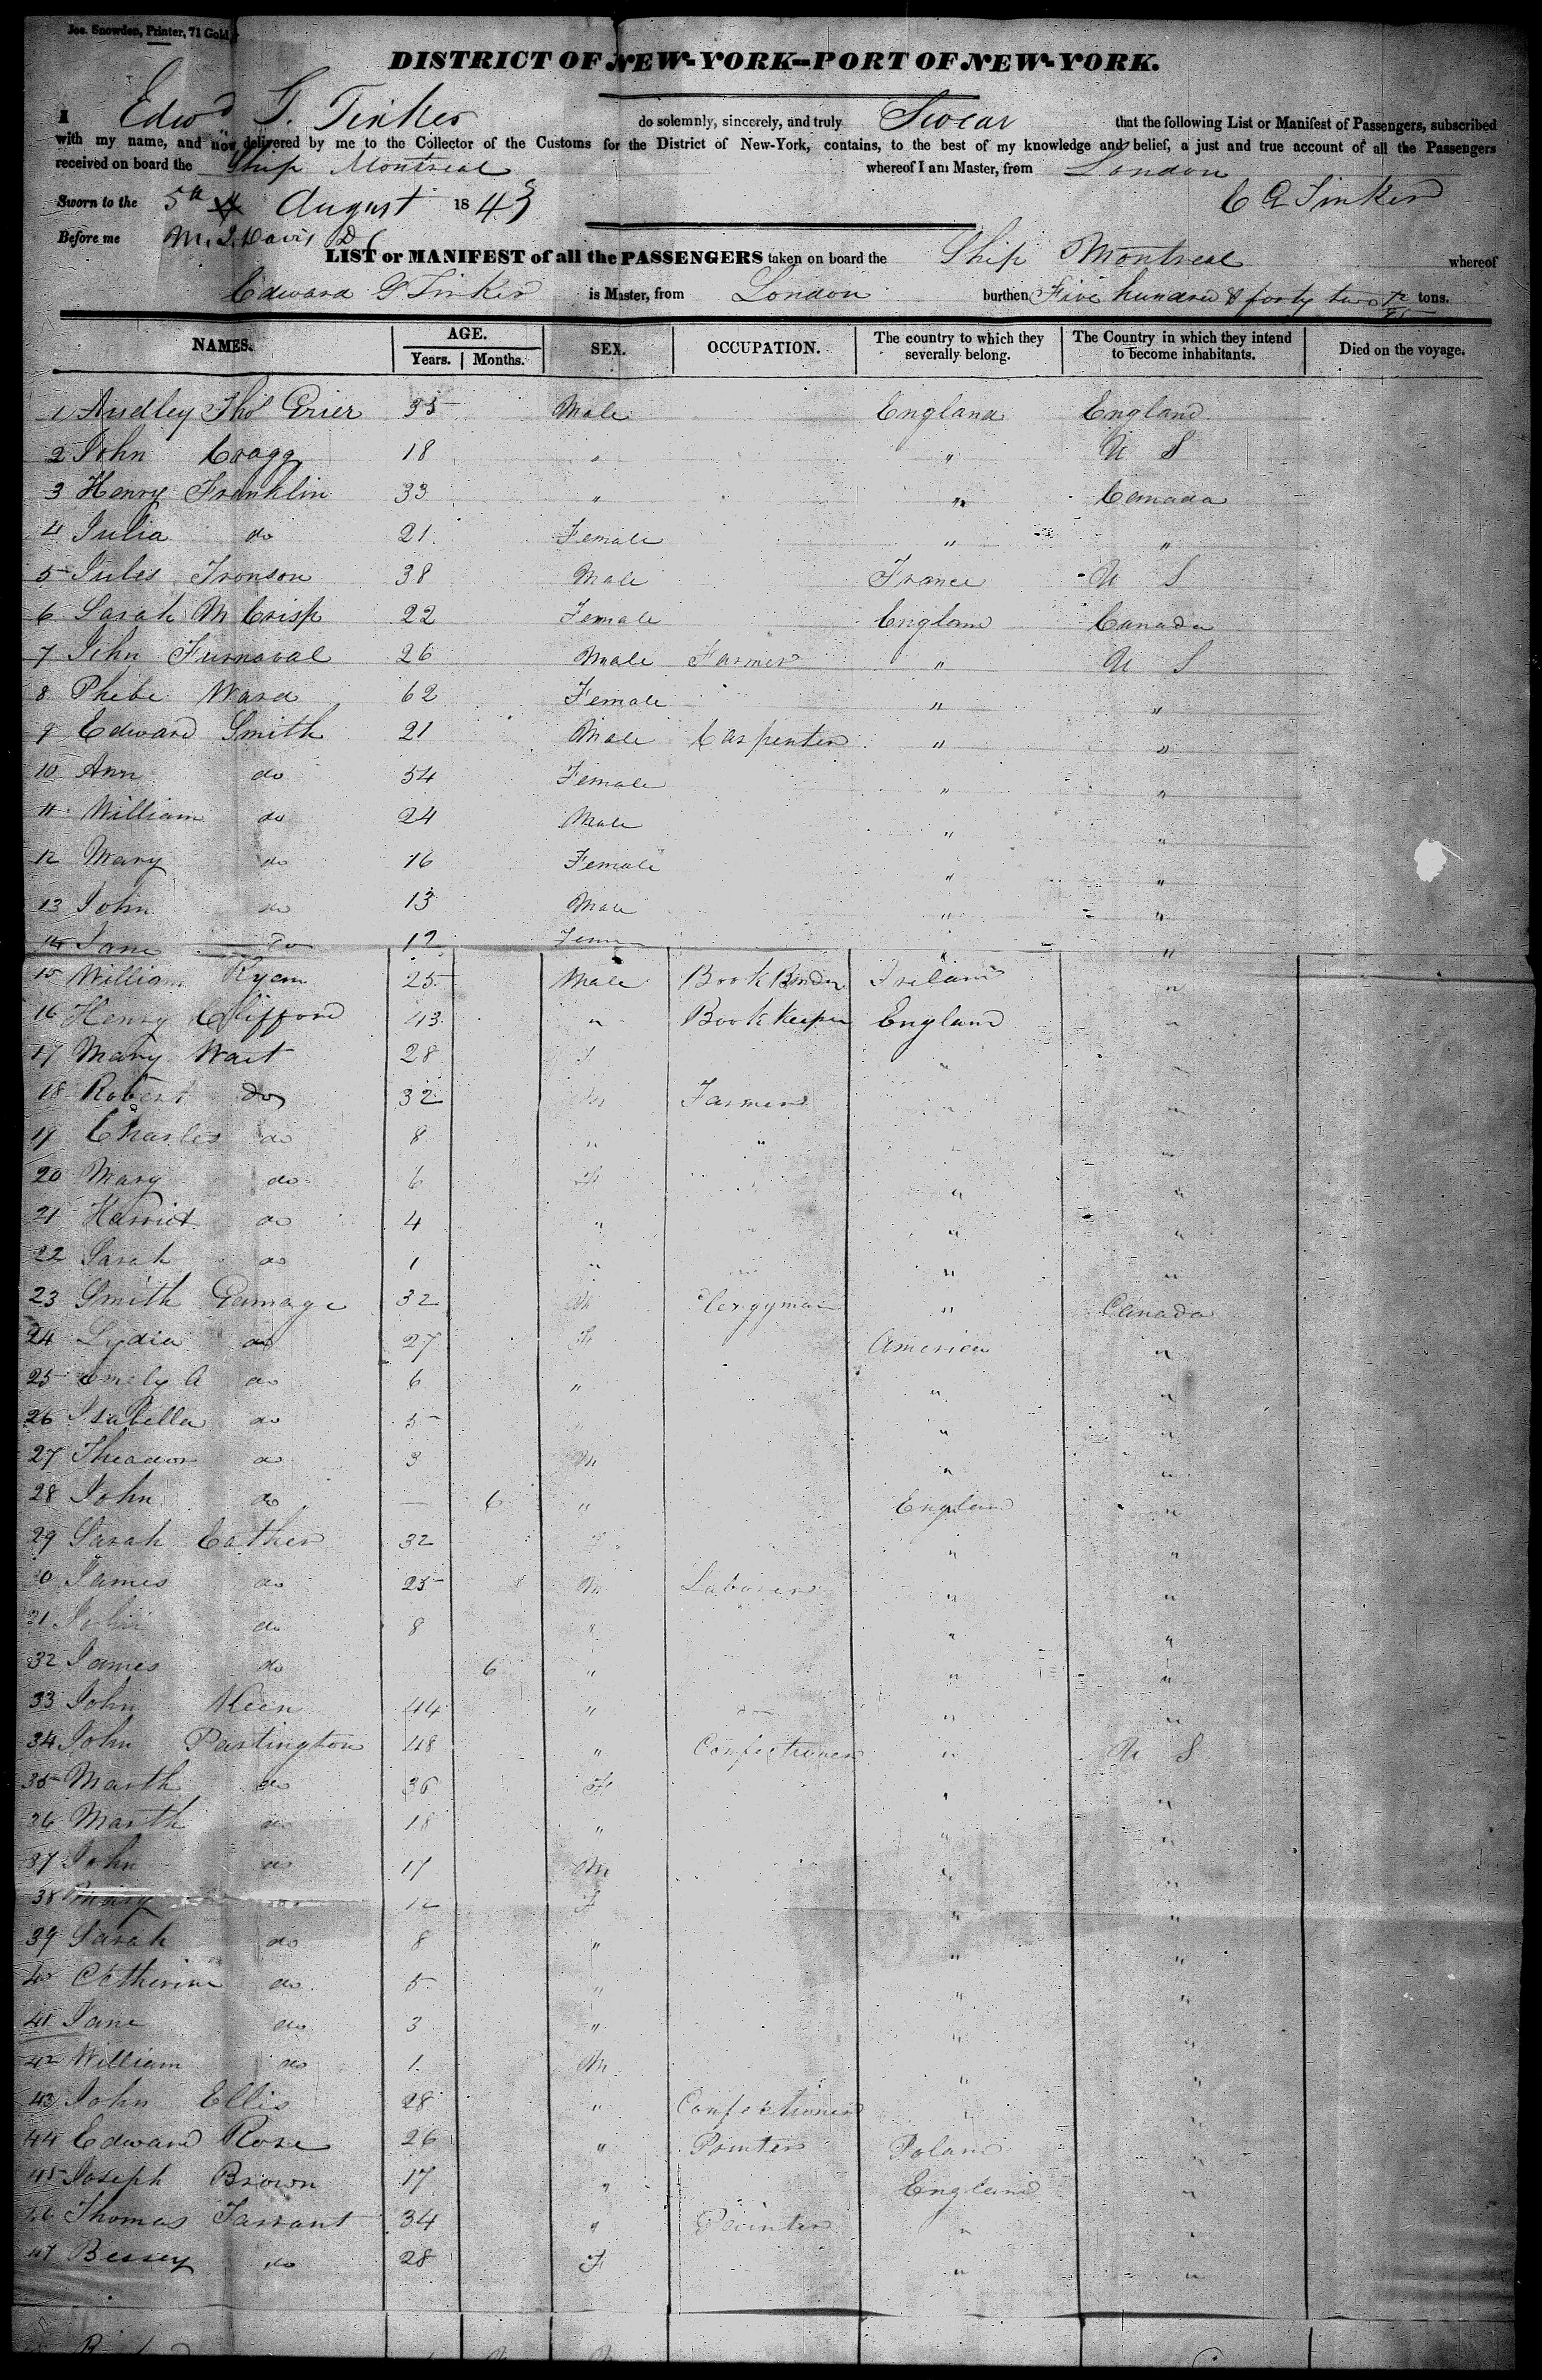 Jos. Snowden, Printer, 71 Gold
DISTRICT OF NEW-YORK--PORT OF NEW-YORK.
I Edwd G. Tinker do solemnly, sincerely, and truly Swear that the following List or Manifest of Passengers, subscribed
with my name, and now delivered by me to the Collector of the Customs for the District of New-York, contains, to the best of my knowledge and belief, a just and true account of all the Passengers
received on board the Ship Montreal whereof I am Master, from London
Sworn to the 5th August 1843 E G Tinker
Before me M. J. Davis D C
LIST or MANIFEST of all the PASSENGERS taken on board the Ship Montreal whereof
Edward G Tinker is Master, from London burthen Five hundred & forty two tons.
NAMES. AGE. Years. Months. SEX. OCCUPATION. The country to which they severally belong. The Country in which they intend to become inhabitants. Died on the voyage.
1 Audley Thos Grier 35 Male England England
2 John Cragg 18 " " U S
3 Henry Franklin 33 " " Canada
4 Julia do 21 Female " "
5 Jules Tronson 38 Male France U S
6 Sarah M Crisp 22 Female England Canada
7 John Furnaval 26 Male Farmer " U S
8 Phebe Ward 62 Female " "
9 Edward Smith 21 Male Carpenter " "
10 Ann do 54 Female " "
11 William do 24 Male " "
12 Mary do 16 Female " "
13 John do 13 Male " "
14 Jane do 12 " "
15 William Ryan 25 Male Book Binder Ireland "
16 Henry Clifford 43 " Book Keeper England "
17 Mary Wait 28 " "
18 Robert do 32 Farmer " "
19 Charles do 8 " " " "
20 Mary do 6 F " "
21 Harriet do 4 " " "
22 Sarah do 1 " " "
23 Smith Gamage 32 M Clergyman " Canada
24 Lydia do 27 F America "
25 Emely A do 6 " " "
26 Isabella do 5 " "
27 Theador do 3 M " "
28 John do — 6 " England "
29 Sarah Cather 32 " "
30 James do 25 M Laborer " "
31 John do 8 " " "
32 James do 6 " " "
33 John Keen 44 " do " "
34 John Partington 48 " Confectioner " U S
35 Marth do 36 F " "
36 Marth do 18 " " "
37 John do 17 M " "
38 Mary do 12 F " "
39 Sarah do 8 " " "
40 Catherine do 5 " " "
41 Jane do 3 " " "
42 William do 1 M " "
43 John Ellis 28 " Confectioner " "
44 Edward Rose 26 " Poland "
45 Joseph Brown 17 " England "
46 Thomas Tarrant 34 " Painter " "
47 Bessey do 28 F " "